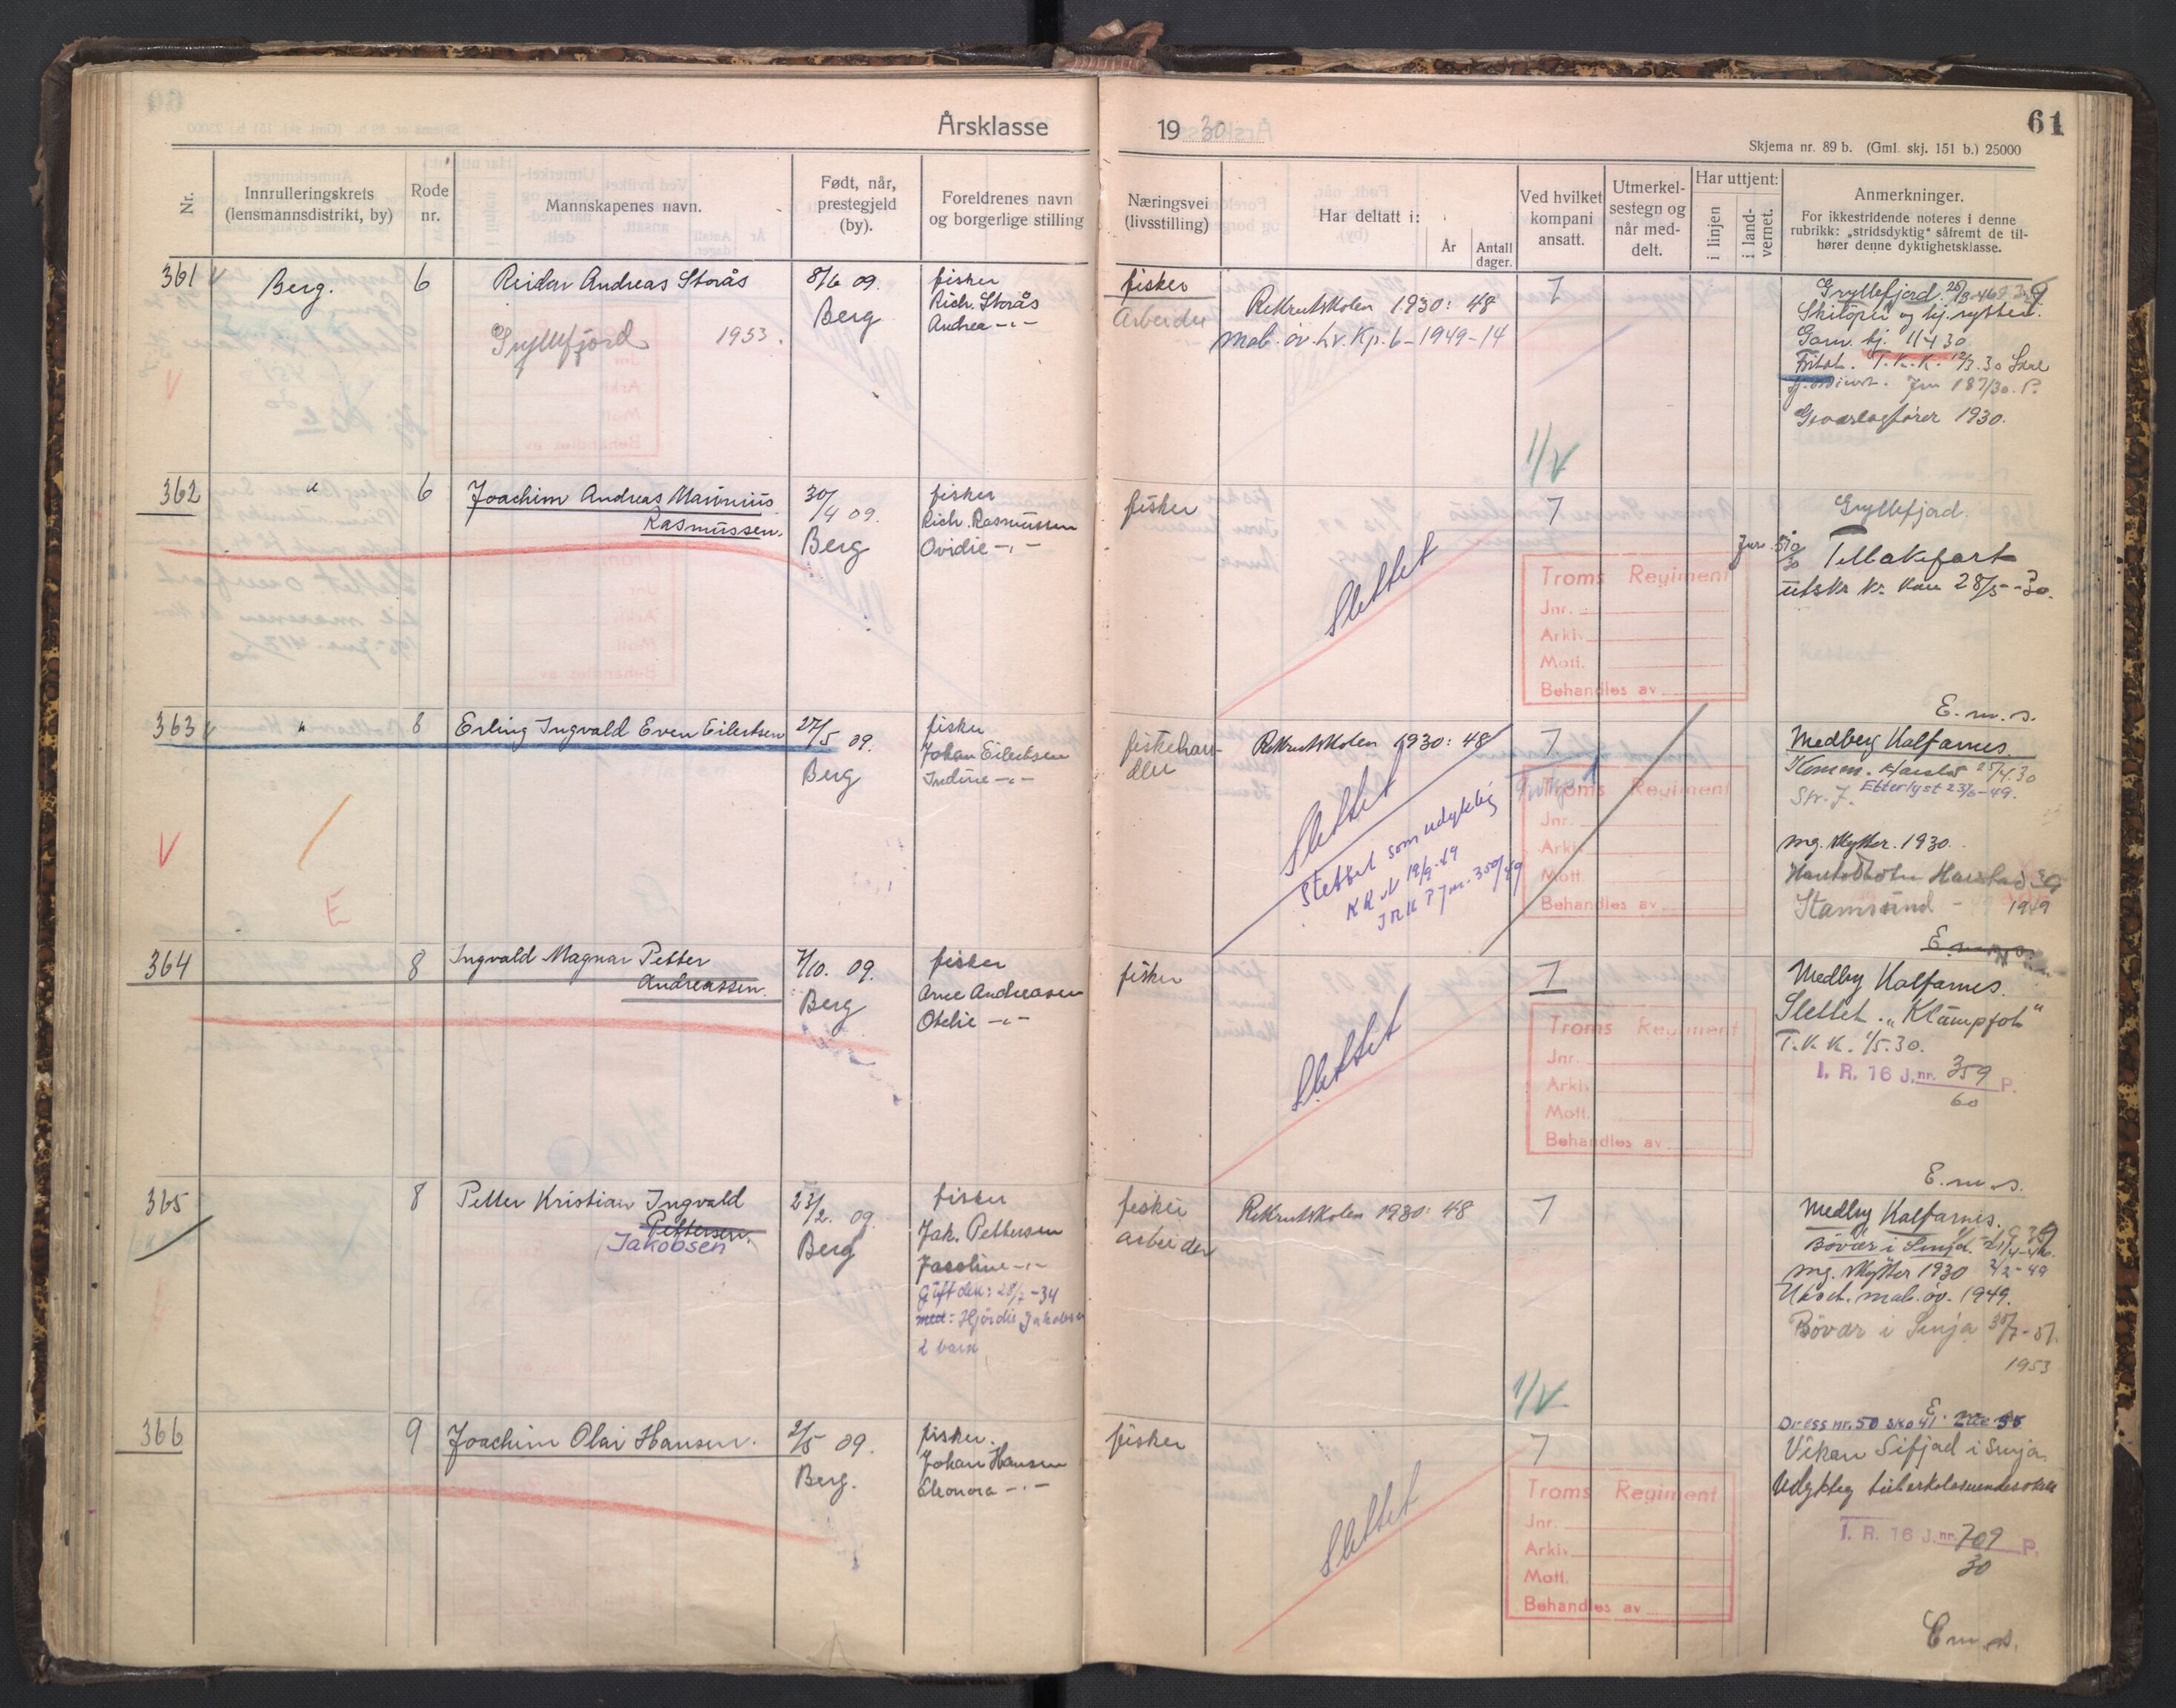 Årsklasse 1930
61
Skjema nr. 89 b. (Gml. skj. 151 b.) 25000
Nr.
Innrulleringskrets
(lensmannsdistrikt, by)
Rode
nr.
Mannskapenes navn.
Født, når,
prestegjeld
(by).
Foreldrenes navn
og borgerlige stilling
Næringsvei
(livsstilling)
Har deltatt i:
År
Antall
dager.
Ved hvilket
kompani
ansatt.
Utmerkel-
sestegn og
når med-
delt.
Har uttjent:
i linjen
i land-
vernet.
Anmerkninger.
For ikkestridende noteres i denne
rubrikk: „stridsdyktig" såfremt de til-
hører denne dyktighetsklasse.
361
Berg.
6
Reidar Andreas Storås
Gryllefjord 1953.
8/6 09.
Berg
fisker
Rich. Storås
Andrea -"-
fisker
Arbeider
Rekrutskolen 1930: 48
Mob. øv. Lv. Kp. 6 - 1949 - 14
7
Gryllefjord.
Skiløper og
Garn. 11/4 30
Fritat. T.K.K. 12/3.30 Skal
Jnr 187/30. P.
Geværlagfører 1930.
1/V
362
"
6
Joachim Andreas Marinius
Rasmussen.
30/4 09.
Berg
fisker
Rich. Rasmussen
Ovidie -"-
fisker
Slettet
7
Troms Regiment
Jnr.
Arkiv
Mott.
Behandles av
Gryllefjord.
Jnr. 510/30
Tilbakeført
utskr. kr. 28/5 - 30.
E. m. s.
363
"
8
Erling Ingvald Even Eilertsen
27/5 09.
Berg
fisker
Johan Eilertsen
Indine -"-
fiskehan-
dler
Rekrutskolen 1930: 48
Slettet
Slettet som udyktig
KRV 19/9-49
Jnr. 350/49
7
Troms Regiment
Jnr.
Arkiv
Mott.
Behandles av
Medby Kalfarnes.
Harstad 25/4.30
Str. J. Etterlyst 23/6-49.
mg. skytter. 1930.
Harstad 39
Stamsund - 1949
V
E
E. m. s.
364
8
Ingvald Magnar Petter
Andreassen.
7/10. 09.
Berg
fisker
Arne Andreasen
Otelie -"-
fisker
Slettet
7
Troms Regiment
Jnr.
Arkiv
Mott.
Behandles av
Medby Kalfarnes.
Slettet. „Klumpfot"
T.K.K. 1/5.30.
I. R. 16 J.nr. 359 P.
60
E. m. s.
365
8
Petter Kristian Ingvald
Pettersen.
Jakobsen
23/2. 09.
Berg
fisker
Jak. Pettersen
Jasoline -"-
Gift den: 28/7-34
med: Hjördis Jakobsen
2 barn
fisker
arbeider
Rekrutskolen 1930: 48
7
Medby Kalfarnes.
Bövær i Senja
mg. skytter 1930 2/2-49
mob. öv. 1949.
Bövær i Senja 30/7-51.
1953
1/V
E.
Dress nr. 50 sko 41
366
9
Joachim Olai Hansen.
2/5 09.
Berg.
fisker.
Johan Hansen
Eleonora -"-
fisker
Slettet
7
Troms Regiment
Jnr.
Arkiv
Mott.
Behandles av
Vikan Sifjord i Senja.
Udyktig
I. R. 16 J.nr. 709 P.
30
E. m. s.